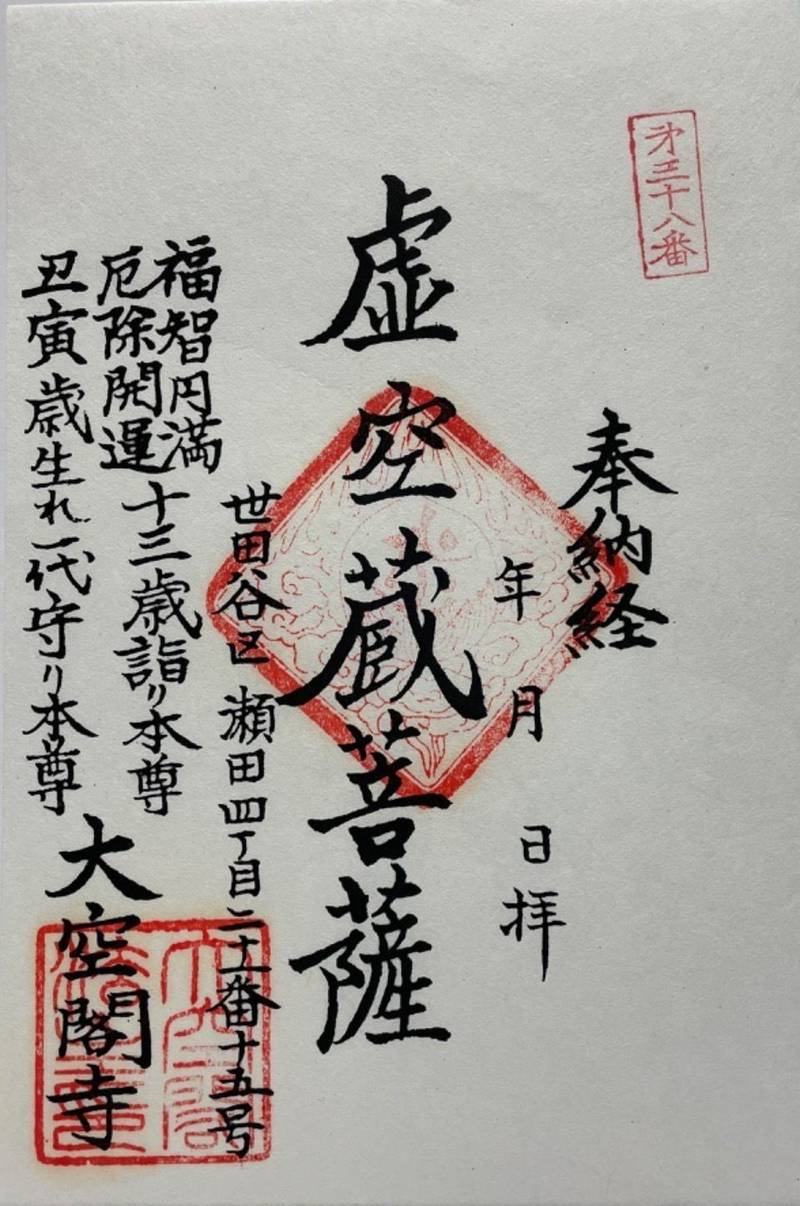 第三十八番
奉納経
年 月 日拝
虚空蔵菩薩
世田谷区瀬田四丁目二十一番十五号
福智円満 十三歳詣り本尊
厄除開運
丑寅歳生れ一代守り本尊
大空閣寺